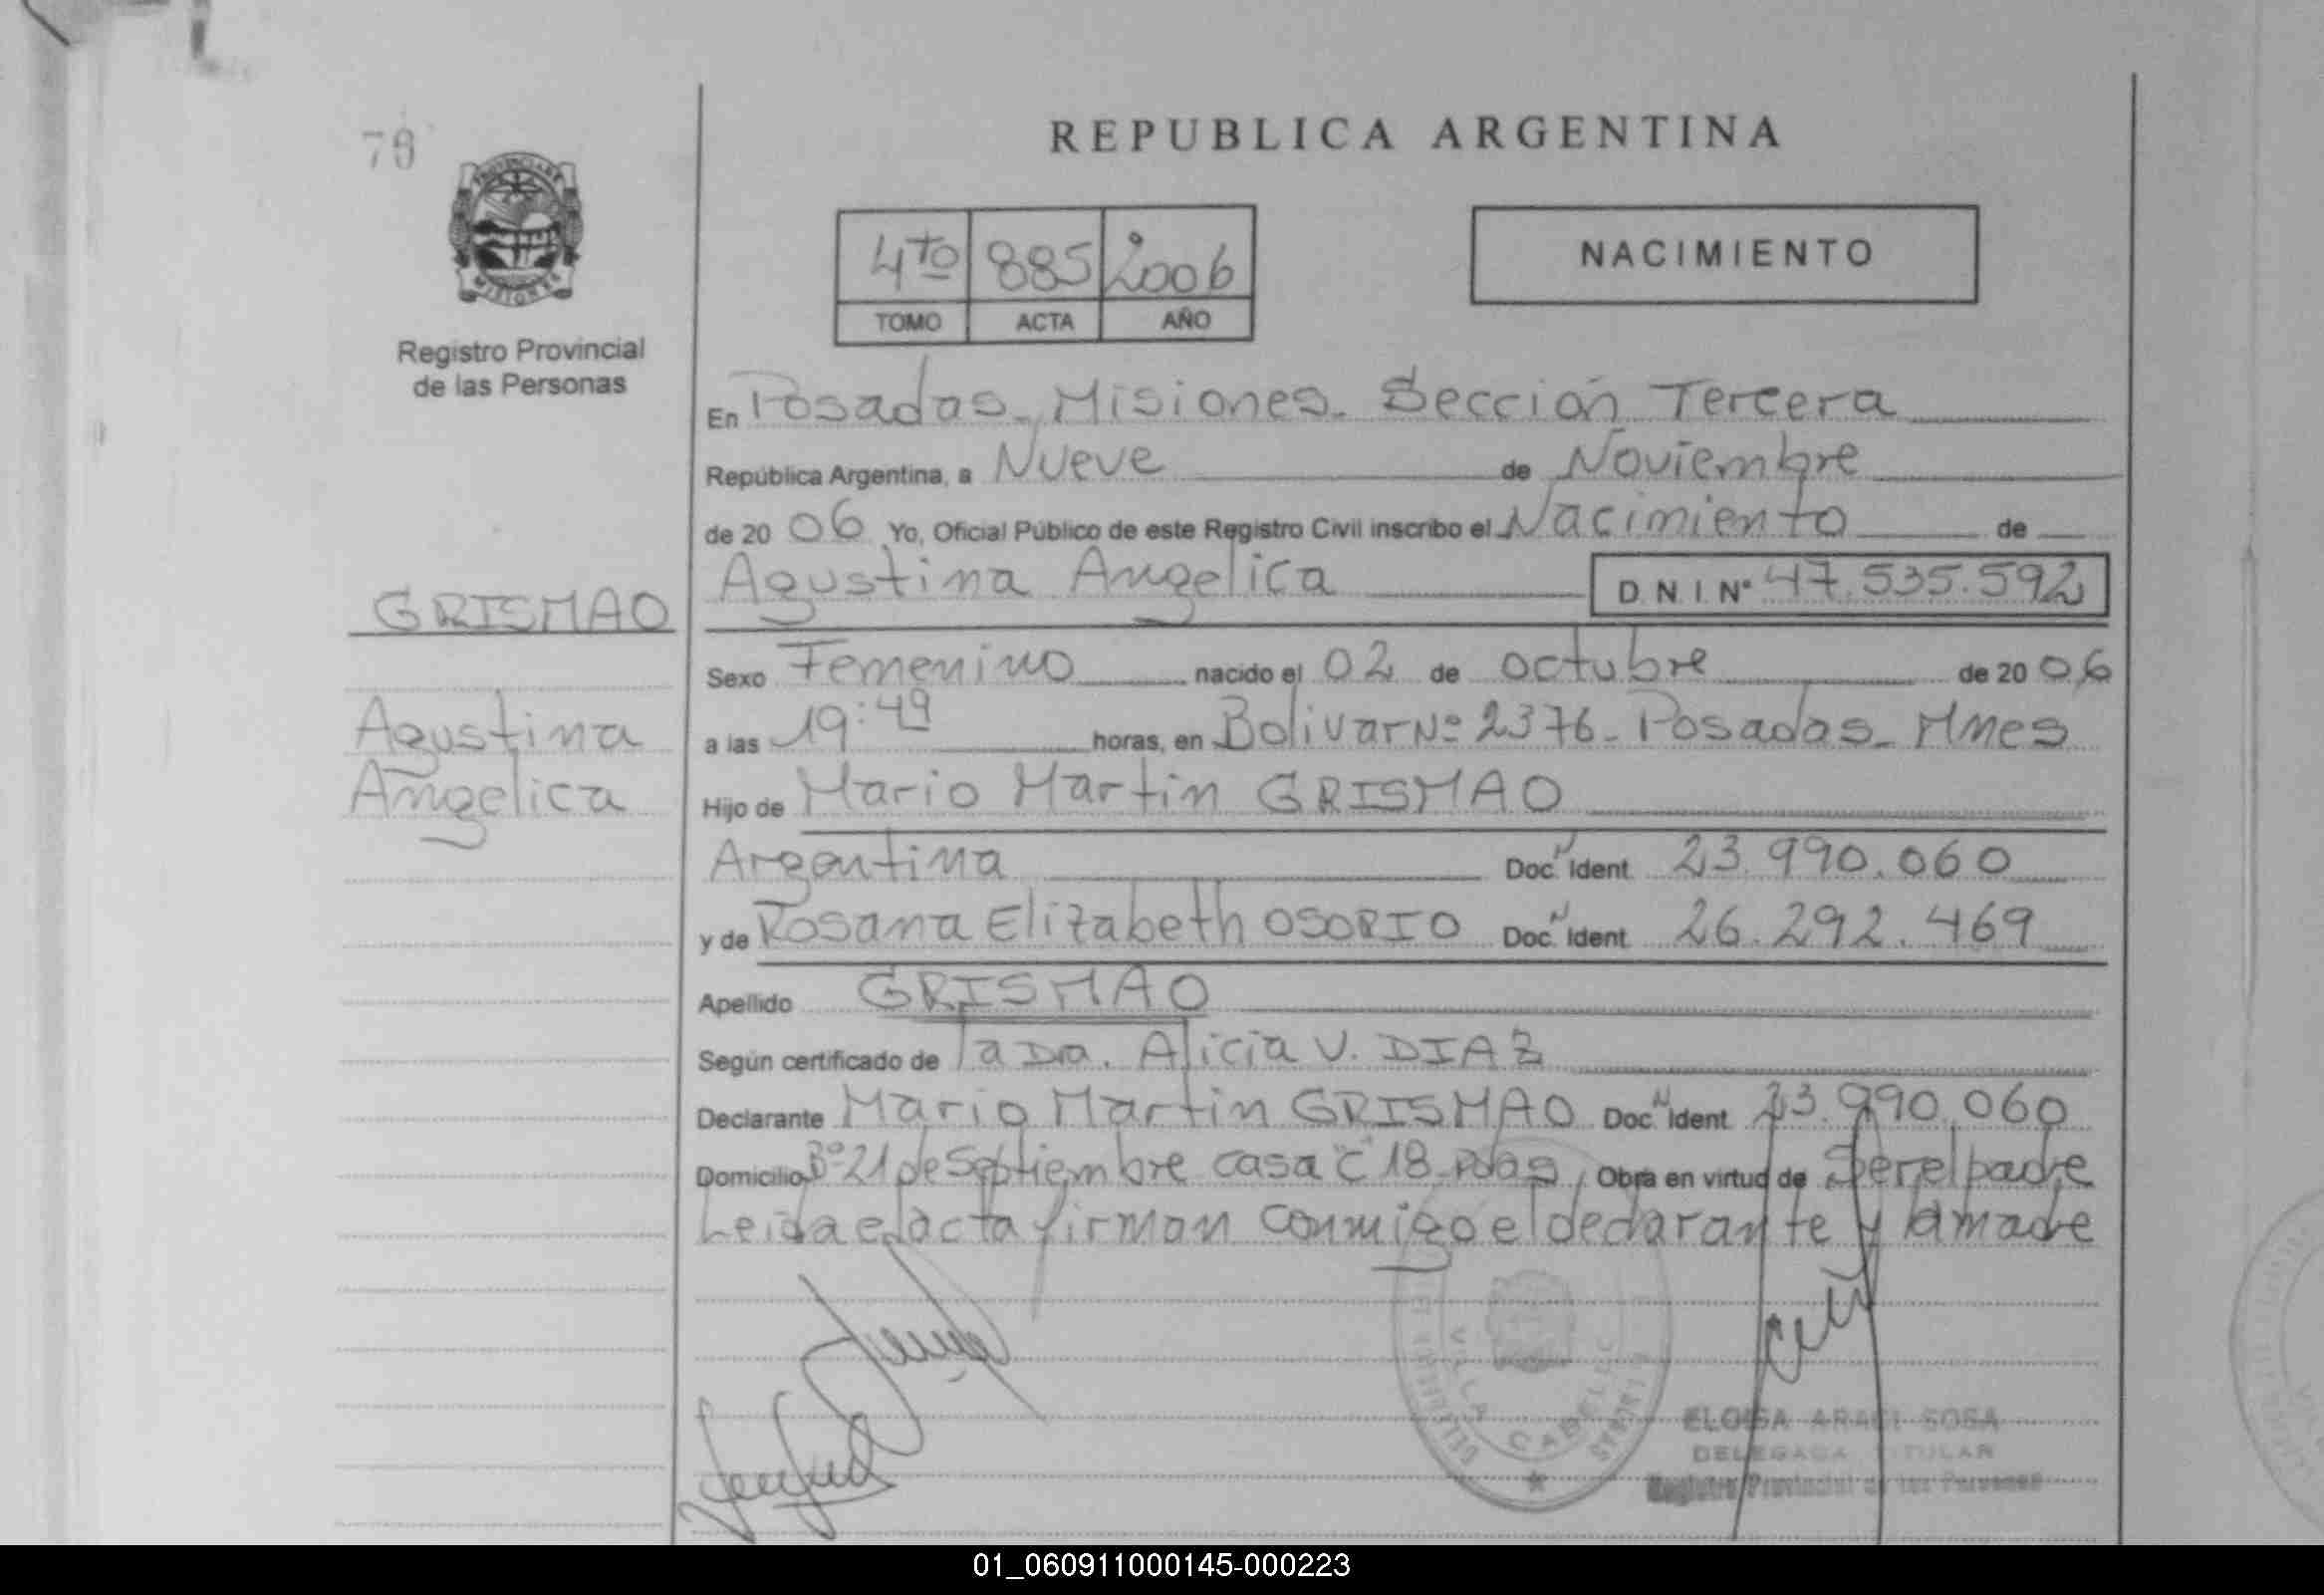 78
REPUBLICA ARGENTINA
PROVINCIA DE
MISIONES
4to 885 2006
TOMO ACTA AÑO
NACIMIENTO
Registro Provincial
de las Personas
En Posadas - Misiones - Sección Tercera
República Argentina, a Nueve de Noviembre
de 20 06 Yo, Oficial Público de este Registro Civil inscribo el Nacimiento de
GRISMAO
Agustina Angelica D.N.I. Nº 47.535.592
Sexo Femenino nacido el 02 de octubre de 20 06
Agustina
Angelica
a las 19:49 horas, en Bolivar Nº 2376 - Posadas - Mnes
Hijo de Mario Martin GRISMAO
Argentina Doc. N Ident 23.990.060
y de Rosana Elizabeth OSORIO Doc. N Ident 26.292.469
Apellido GRISMAO
Según certificado de la Dra. Alicia V. DIAZ
Declarante Mario Martin GRISMAO Doc. N Ident 23.990.060
Domicilio Bº 21 de Septiembre casa "C" 18 - Pdas Obra en virtud de Ser el padre
Leida el acta firman conmigo el declarante y la madre
VILLA CABELLO
ELOISA ARACI SOSA
DELEGADA TITULAR
Registro Provincial de las Personas
01_060911000145-000223